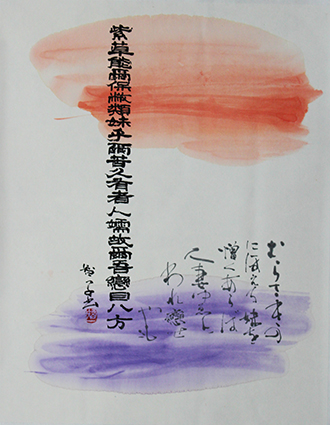 むらさきの
にほへる妹を
憎くあらは
人妻ゆゑに
われ戀
めやも
紫草能爾保敝類妹乎爾苦久有者人嬬故爾吾戀目八方